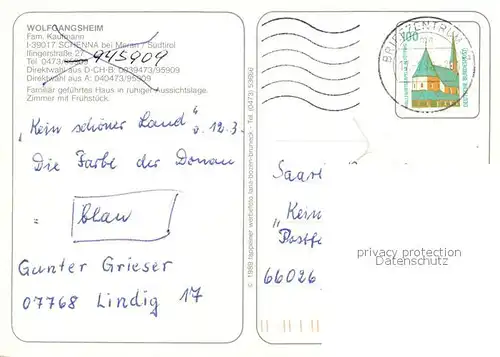 WOLFGANGSHEIM
Fam. Kaufmann
I-39017 SCHENNA bei Meran / Südtirol
Ifingerstraße 27
Tel. 0473/95909 945909
Direktwahl aus D-CH-B: 0039473/95909
Direktwahl aus A: 040473/95909
Familiär geführtes Haus in ruhiger Aussichtslage.
Zimmer mit Frühstück.
„Kein schöner Land" v. 12.3.
Die Farbe der Donau
=
blau
Gunter Grieser
07768 Lindig 17
© 1989 tappeiner werbefoto lana-bozen-bruneck - Tel. (0473)
BRIEFZENTRUM
100
Saar
„Kein
Postf
66026
privacy protection
Datenschutz